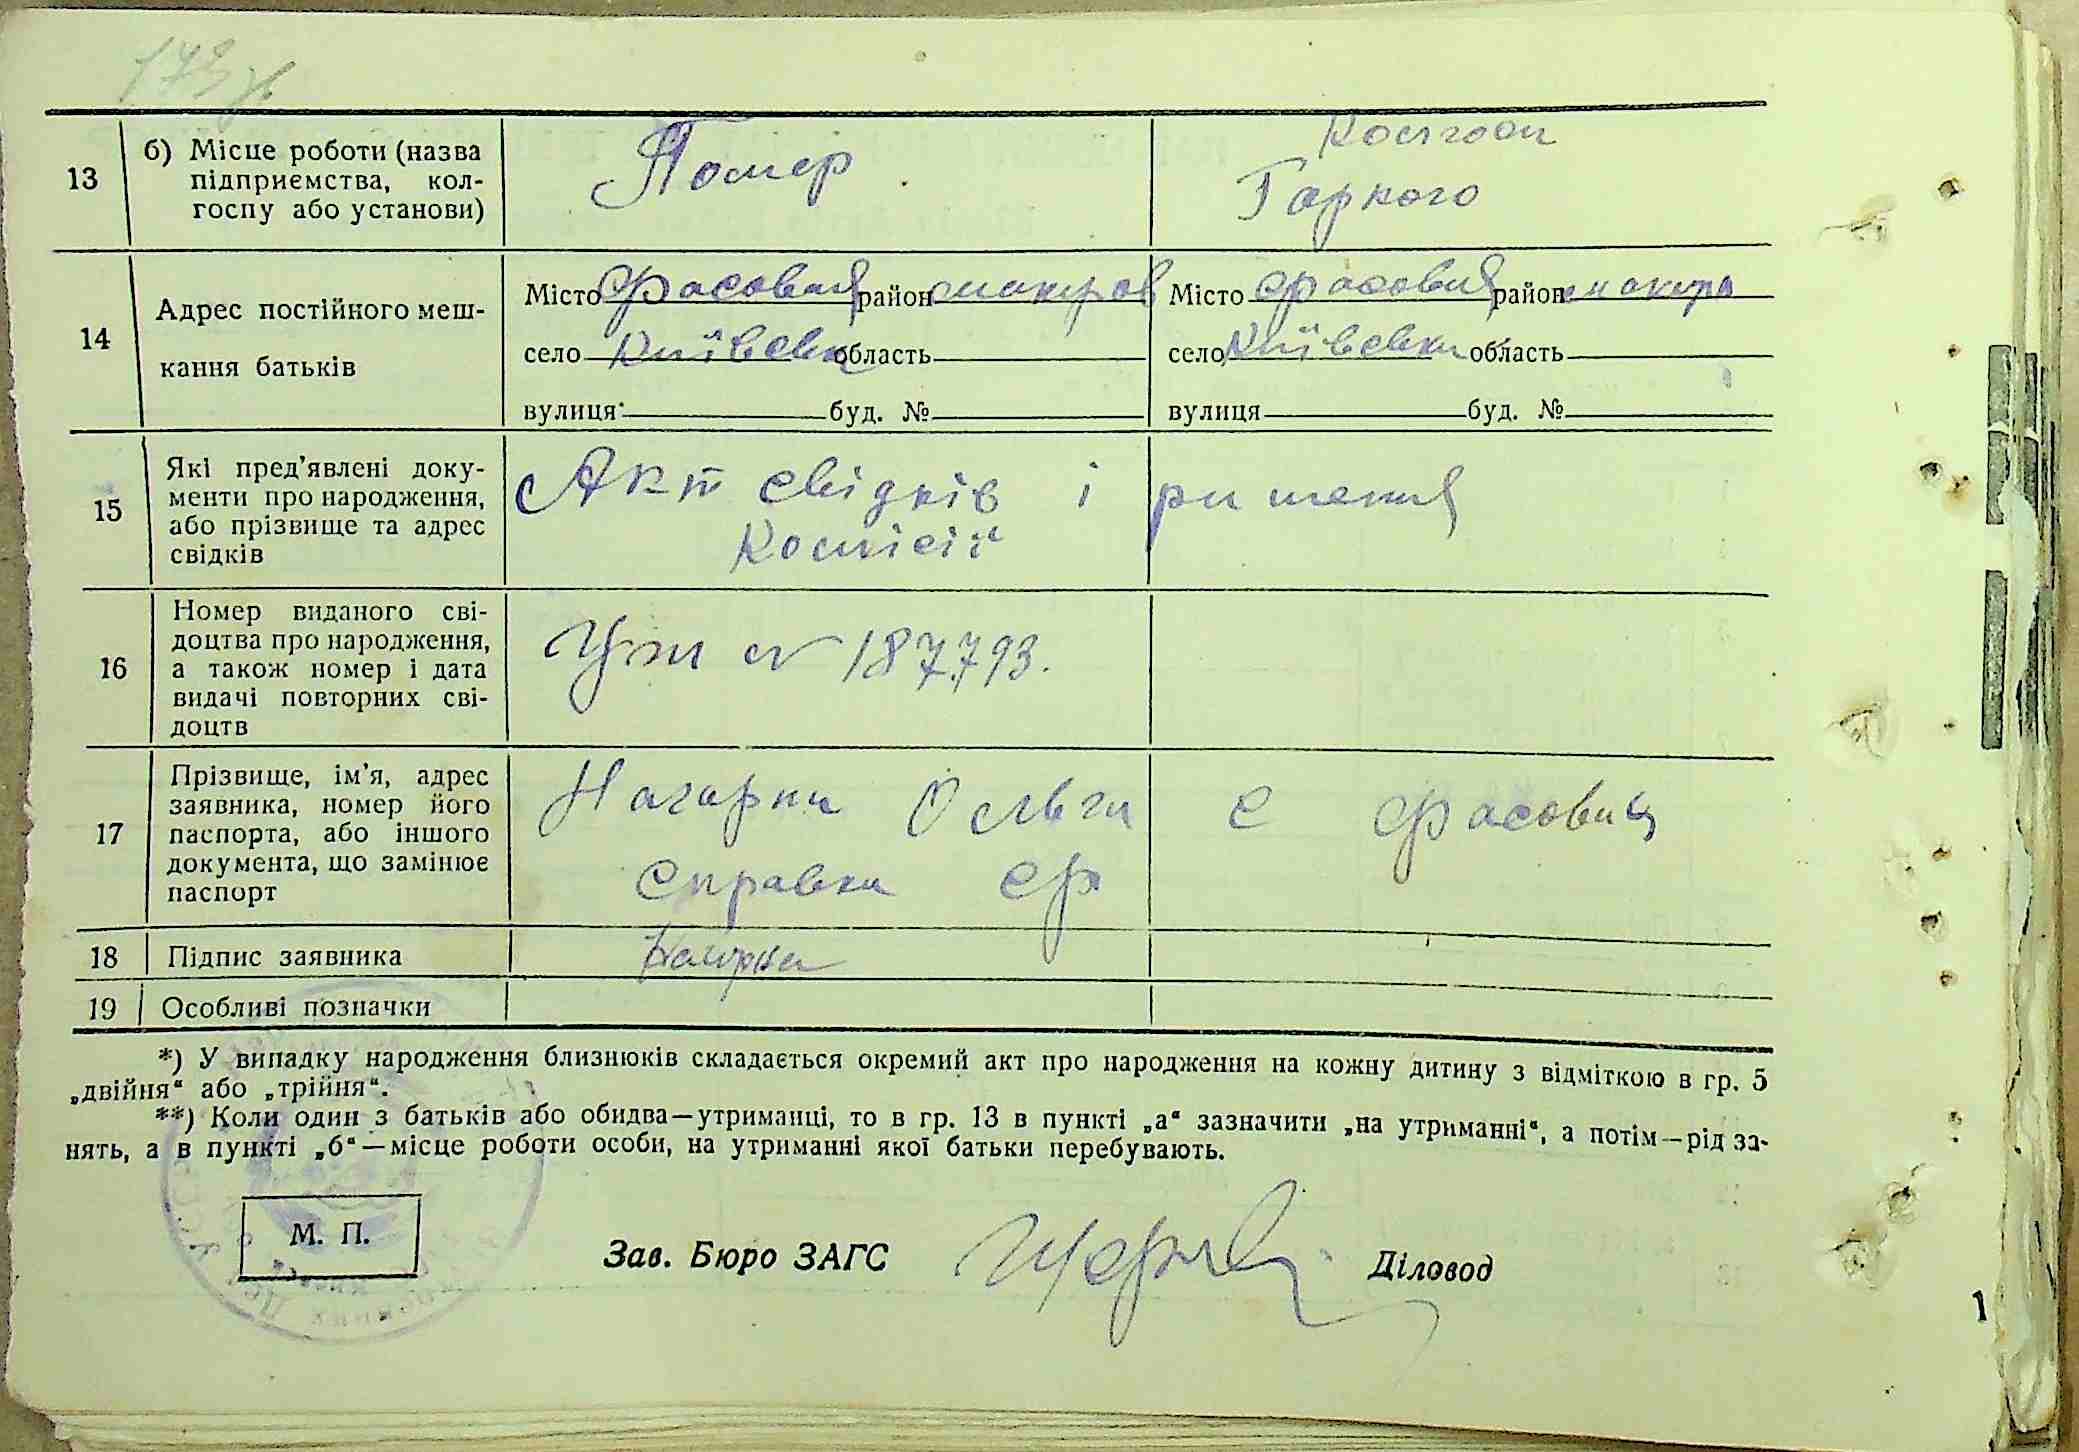 173 зв.
13
б) Місце роботи (назва
підприємства, кол-
госпу або установи)
Помер
Колгосп
Горкого
14
Адрес постійного меш-
кання батьків
Місто Фасовая район макаров
село Київська область
вулиця буд. №
Місто Фасовая район макара
село Київська область
вулиця буд. №
15
Які пред'явлені доку-
менти про народження,
або прізвище та адрес
свідків
Акт свідків і ришення
Комісії
16
Номер виданого сві-
доцтва про народження,
а також номер і дата
видачі повторних сві-
доцтв
N 187793.
17
Прізвище, ім'я, адрес
заявника, номер його
паспорта, або іншого
документа, що замінює
паспорт
Нагорна Ольга с Фасовая
Справка
18 Підпис заявника
19 Особливі позначки
*) У випадку народження близнюків складається окремий акт про народження на кожну дитину з відміткою в гр. 5
„двійня“ або „трійня“.
**) Коли один з батьків або обидва—утриманці, то в гр. 13 в пункті „а“ зазначити „на утриманні“, а потім—рід за-
нять, а в пункті „б“—місце роботи особи, на утриманні якої батьки перебувають.
М. П.
Зав. Бюро ЗАГС
Діловод
1